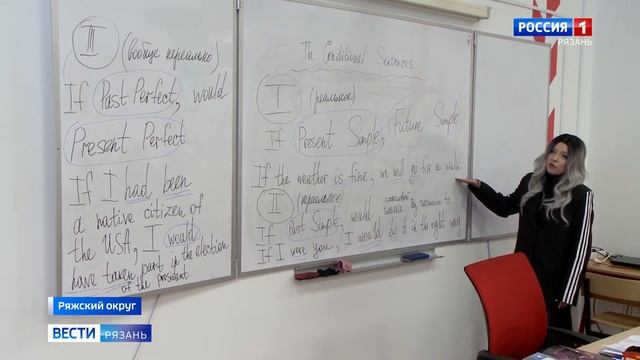 III (вообще нереально)
If Past Perfect, would
Present Perfect
If I had been
a native citizen of
the USA, I would
have taken part in the election
of the president.
The Conditional Sentences
I (реальное)
If Present Simple, Future Simple
If the weather is fine, we will go for a walk
II (нереальное)
If Past Simple, would
If I were you, I would do it in the right way
РОССИЯ 1
РЯЗАНЬ
Ряжский округ
ВЕСТИ РЯЗАНЬ